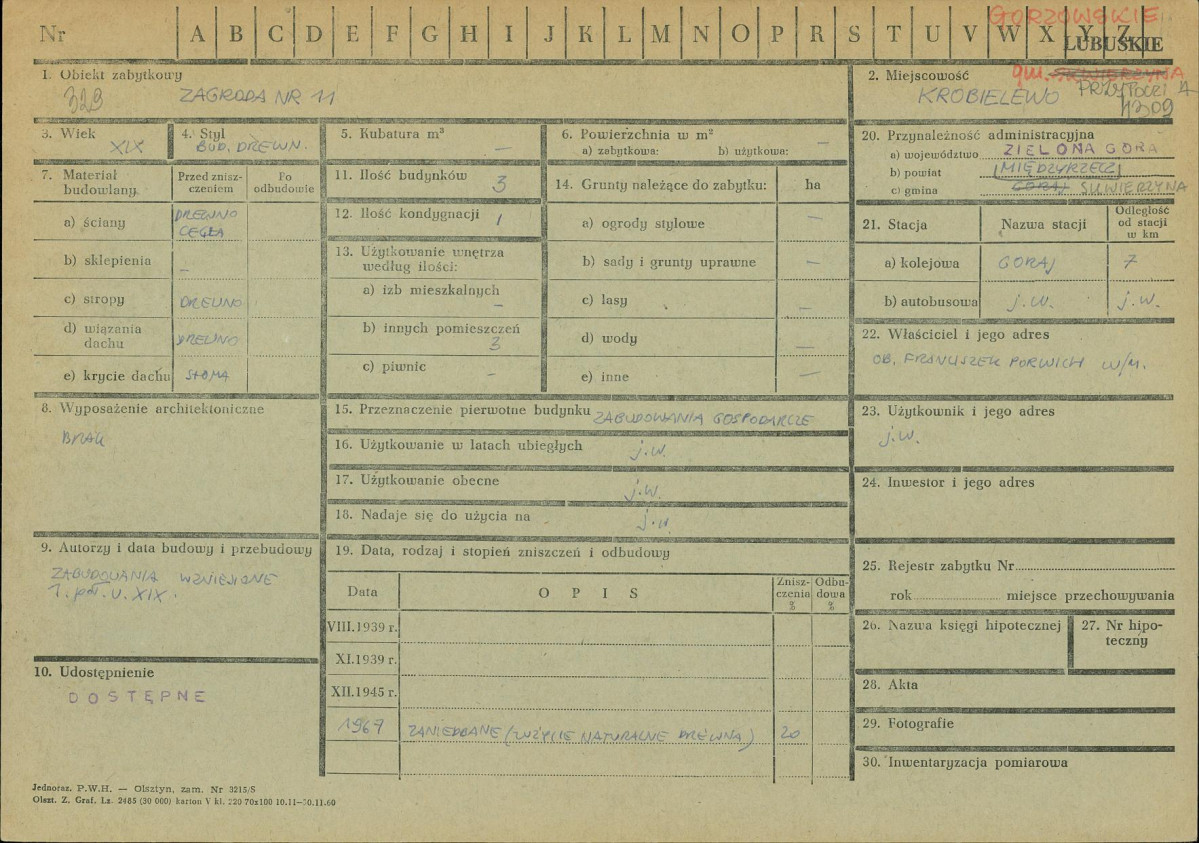 GORZOWSKIE
Nr A B C D E F G H I J K L M N O P R S T U V W X Y Z
LUBUSKIE
1. Obiekt zabytkowy
323 ZAGRODA NR 11
2. Miejscowość
gm. SKWIERZYNA
PRZYTOCZNA
KROBIELEWO
1309
3. Wiek
XIX
4. Styl
BUD. DREWN.
5. Kubatura m³
—
6. Powierzchnia w m²
a) zabytkowa: b) użytkowa: —
7. Materiał budowlany
Przed znisz-
czeniem
Po
odbudowie
a) ściany DREWNO
CEGŁA
b) sklepienia —
c) stropy DREWNO
d) wiązania
dachu DREWNO
e) krycie dachu SŁOMA
8. Wyposażenie architektoniczne
BRAK
9. Autorzy i data budowy i przebudowy
ZABUDOWANIA WZNIESIONE
1. poł. w. XIX.
10. Udostępnienie
DOSTĘPNE
11. Ilość budynków 3
12. Ilość kondygnacji 1
13. Użytkowanie wnętrza
według ilości:
a) izb mieszkalnych —
b) innych pomieszczeń 3
c) piwnic —
14. Grunty należące do zabytku: ha
a) ogrody stylowe —
b) sady i grunty uprawne —
c) lasy —
d) wody —
e) inne —
15. Przeznaczenie pierwotne budynku ZABUDOWANIA GOSPODARCZE
16. Użytkowanie w latach ubiegłych j.w.
17. Użytkowanie obecne j.w.
18. Nadaje się do użycia na j.w
19. Data, rodzaj i stopień zniszczeń i odbudowy
Data OPIS Znisz-
czenia
% Odbu-
dowa
%
VIII.1939 r.
XI.1939 r.
XII.1945 r.
1967 ZANIEDBANE (ZUŻYCIE NATURALNE DREWNA) 20
20. Przynależność administracyjna
a) województwo ZIELONA GÓRA
b) powiat MIĘDZYRZECZ
c) gmina GORAJ SKWIERZYNA
21. Stacja Nazwa stacji Odległość
od stacji
w km
a) kolejowa GORAJ 7
b) autobusowa j.w. j.w.
22. Właściciel i jego adres
OB. FRANCISZEK PORWICH W/M.
23. Użytkownik i jego adres
j.w.
24. Inwestor i jego adres
25. Rejestr zabytku Nr
rok miejsce przechowywania
26. Nazwa księgi hipotecznej
27. Nr hipo-
teczny
28. Akta
29. Fotografie
30. Inwentaryzacja pomiarowa
Jednoraz. P.W.H. — Olsztyn, zam. Nr 3215/S
Olszt. Z. Graf. Lz. 2485 (30 000) karton V kl. 220 70x100 10.11—30.11.60